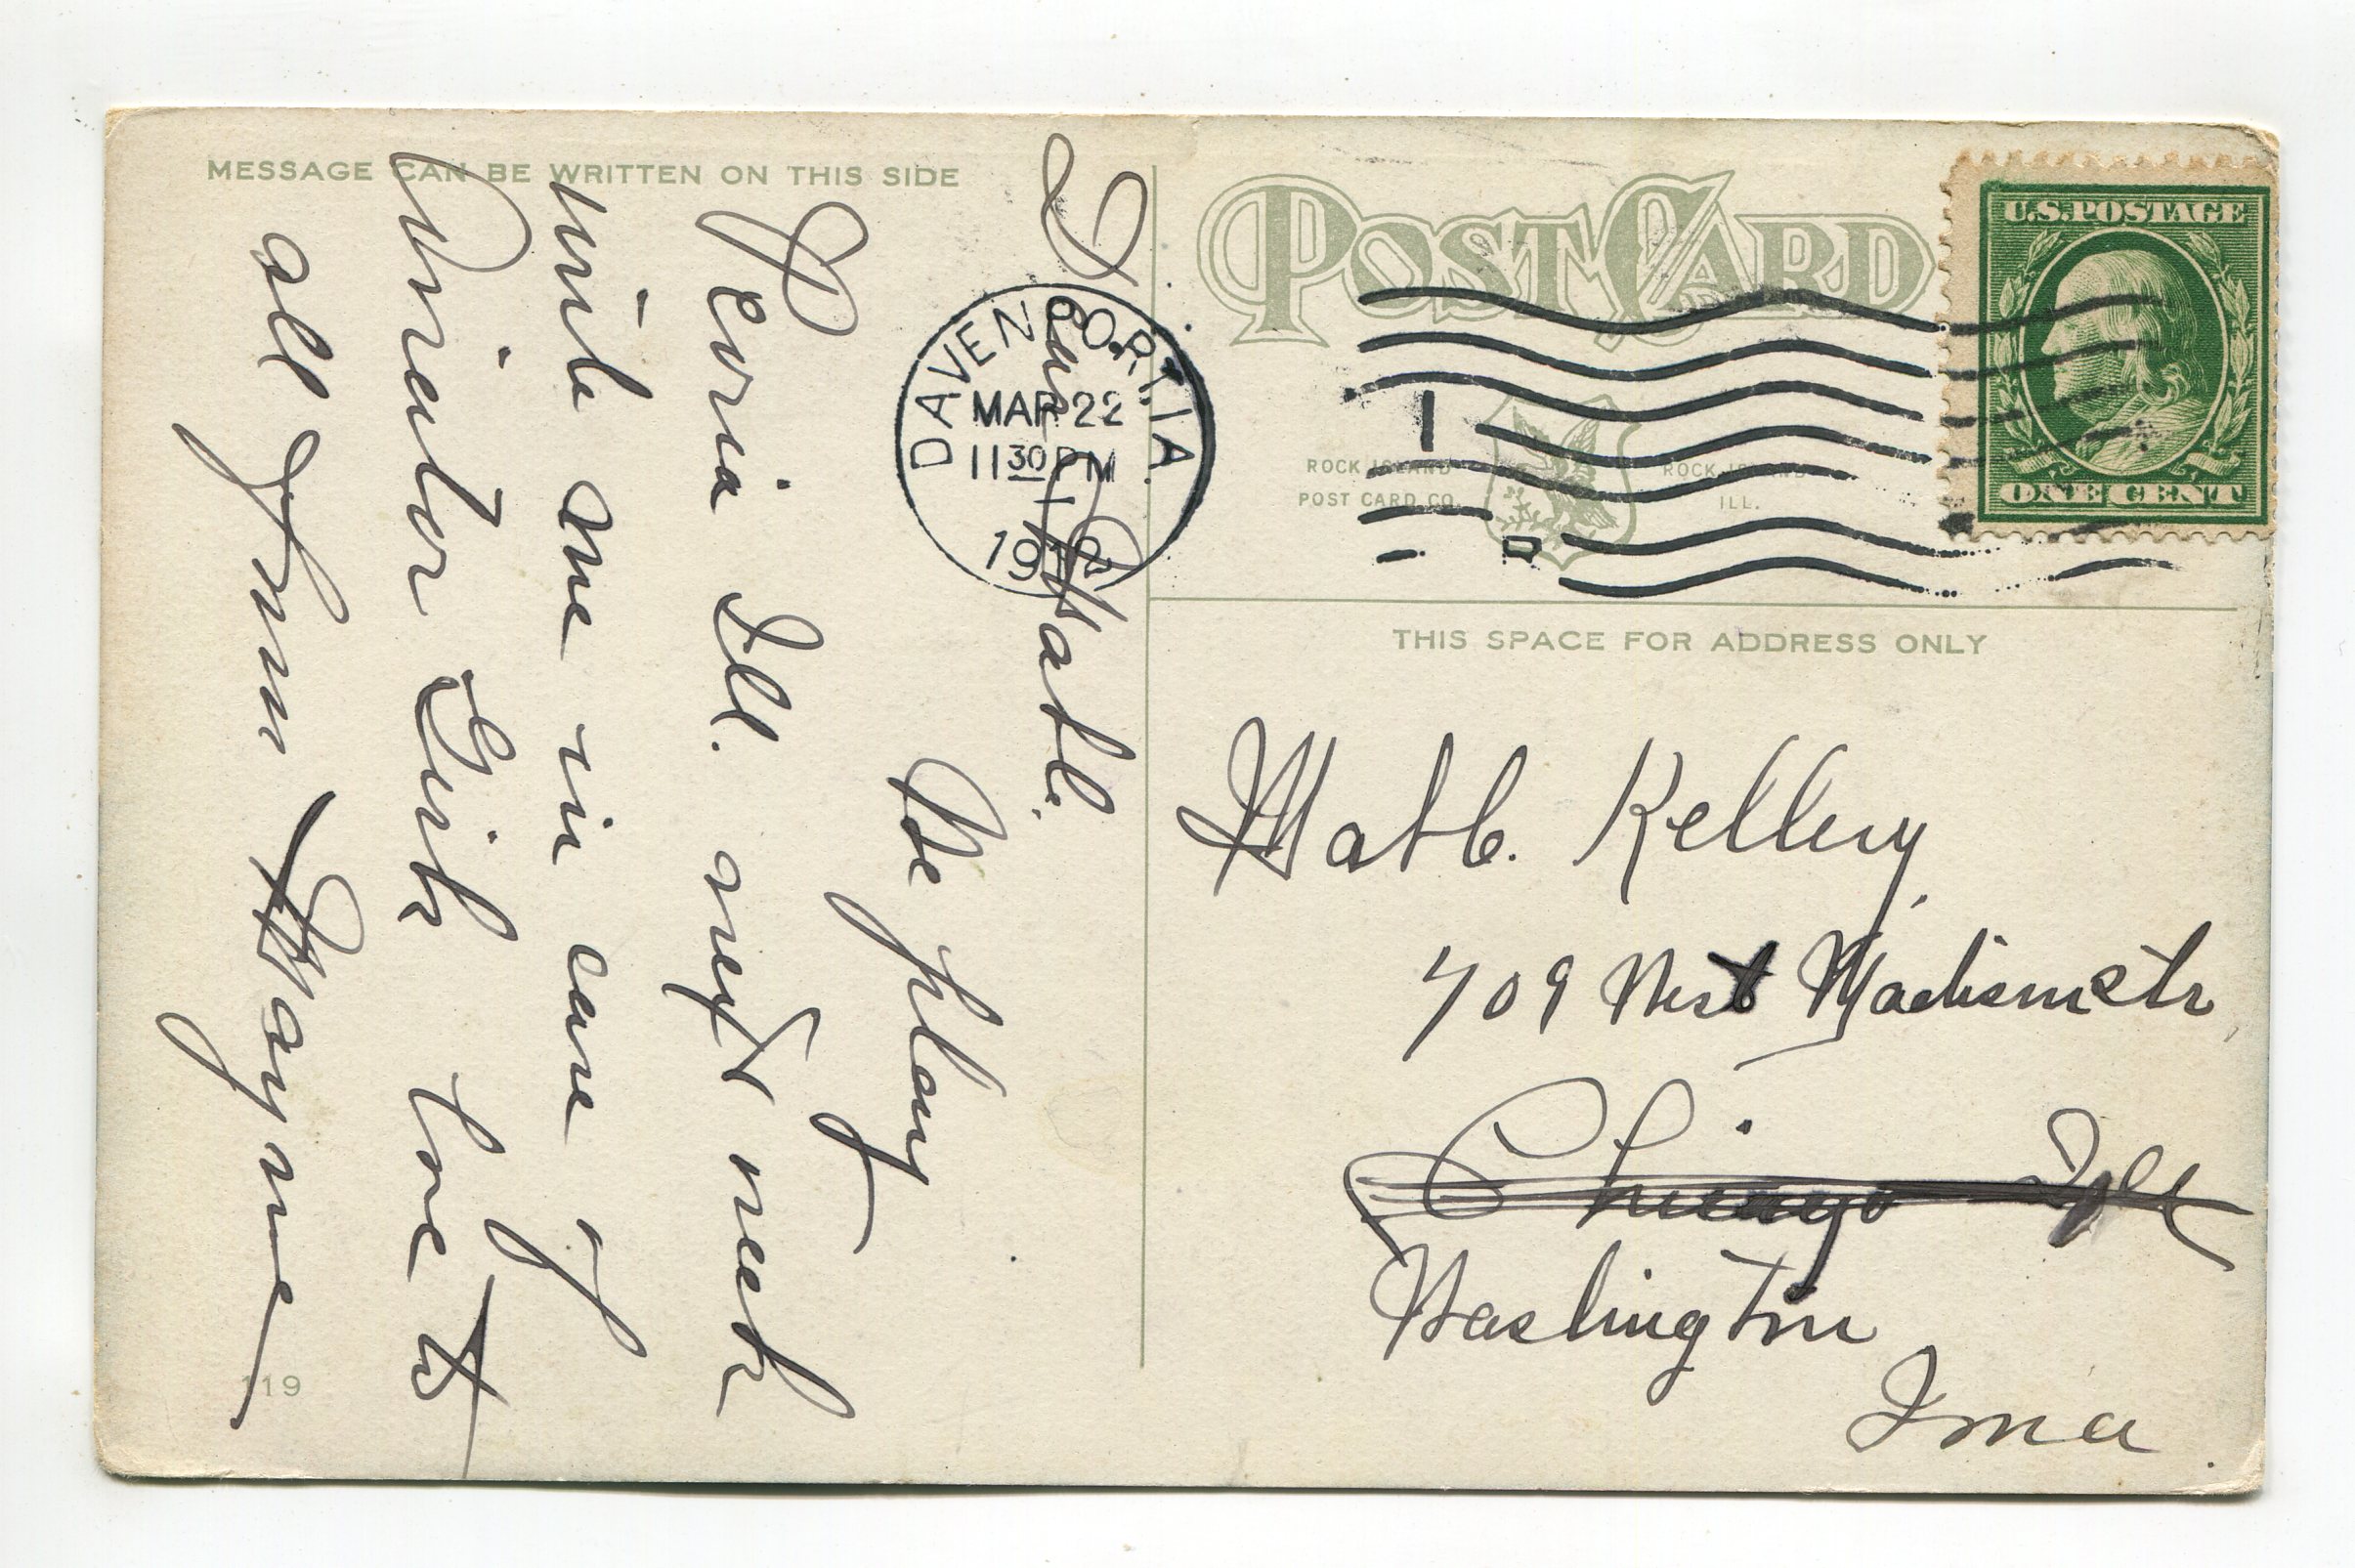 MESSAGE CAN BE WRITTEN ON THIS SIDE
Dear Matt.
We play
Peoria Ill. next week
write me in care of
Theater Love to
all from Mayme
119
DAVENPORT, IA.
MAR 22
11 30 PM
POST CARD
ROCK ISLAND POST CARD CO.
ROCK ISLAND ILL.
U.S. POSTAGE
ONE CENT
THIS SPACE FOR ADDRESS ONLY
Matt. Kellery
709 West Madison Str
Chicago Ill
Washington
Iowa